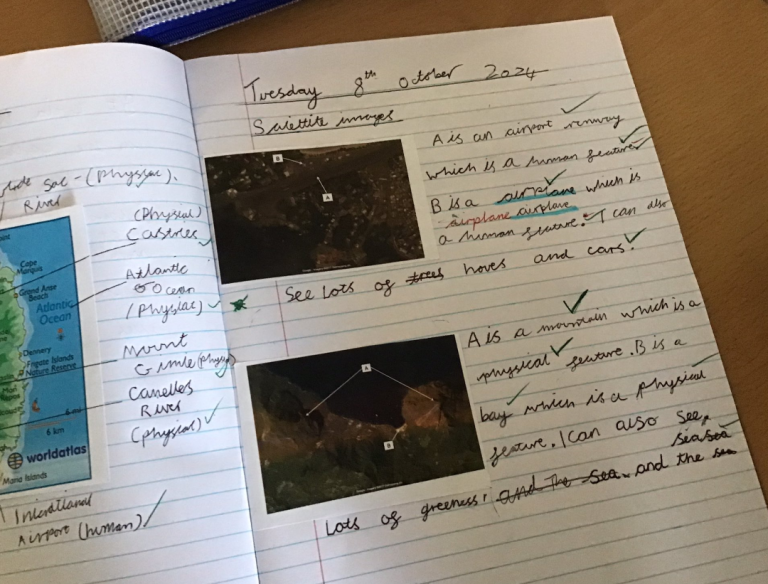 Sac - (Physiac).
River
(Physical)
Castries
Atlantic
Ocean
(Physiac)
Mount
Gimie (Physiac)
Canelles
River
(Physical)
Airport (human)
Cape
Marquis
Grand Anse
Beach
Atlantic
Ocean
Dennery
Fregate Islands
Nature Reserve
6 mi
6 km
worldatlas
Maria Islands
Tuesday 8th October 2024
Satellite images
A is an airport runway
which is a human feature
B is a airplane which is
airplane airplane
a human feature. I can also
See Lots of trees hoves and cars.
B
A
A is a mountain which is a
physical feature. B is a
bay which is a physical
feature. I can also see
sea sea
Lots of greeness, and the sea. and the sea
A
B